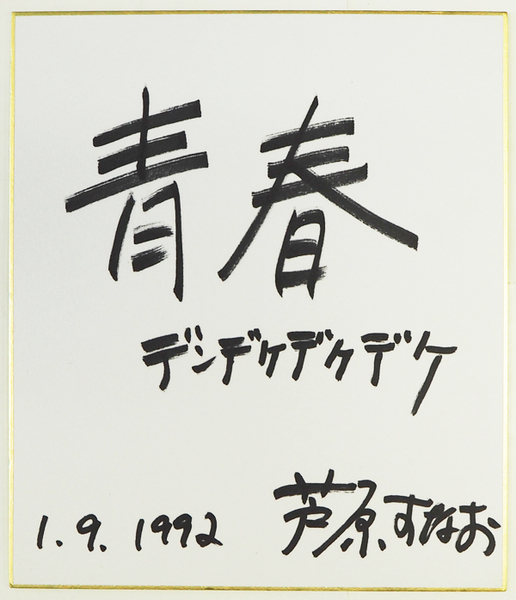 青春
デンデケデケデケ
1.9.1992 芦原すなお